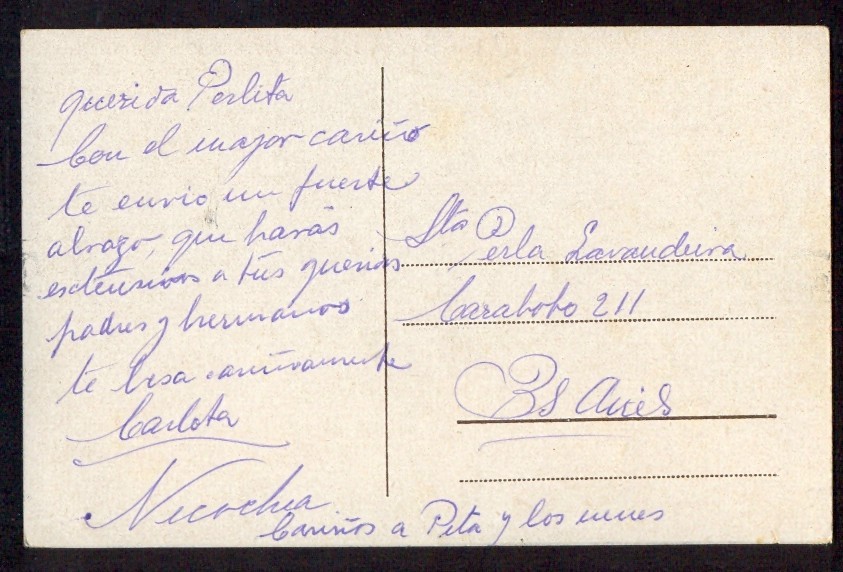 Querida Perlita
Con el mayor cariño
te envio un fuerte
abrazo, que harás
extensivos a tus queridos
padres y hermanos
te besa cariñosamente
Carlota
Necochea
Cariños a Peta y los nenes
Sta Perla Lavandeira
Carabobo 211
Bs Aires